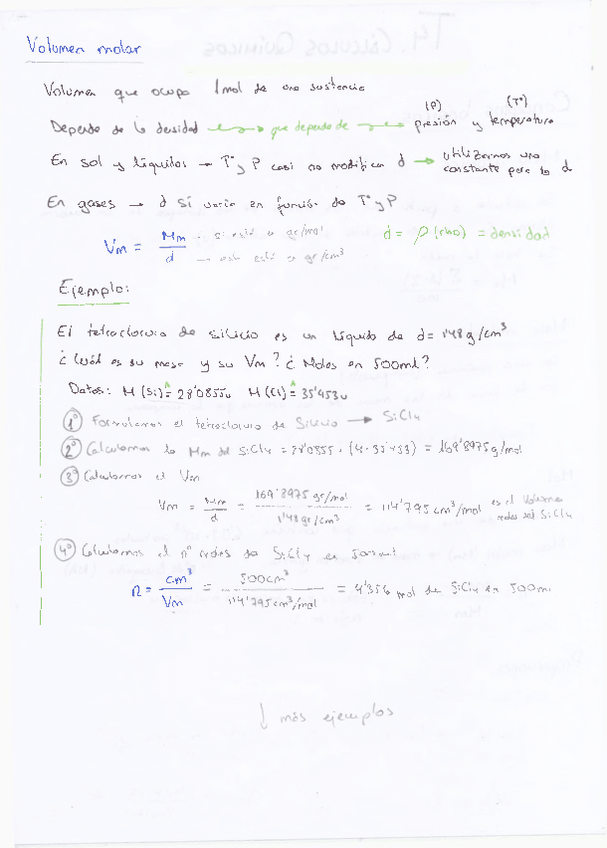 Volumen molar
Volumen que ocupa 1mol de una sustancia
(P) (Tª)
Depende de la densidad → que depende de → presión y temperatura
En sol y líquidos → Tª y P casi no modifican d → utilizamos una constante para la d
En gases → d sí varía en función de Tª y P
Vm = Mm / d → si está a gr/mol → está a gr/cm³ d = ρ (rho) = densidad
Ejemplo:
El tetracloruro de silicio es un líquido de d = 1'48 g/cm³
¿Cuál es su masa y su Vm? ¿Moles en 500ml?
Datos: M (Si) = 28'0855u M (Cl) = 35'453u
1º Formulamos el tetracloruro de Silicio → SiCl4
2º Calculamos la Mm del SiCl4 = 28'0855 + (4·35'453) = 169'8975g/mol
3º Calculamos el Vm
Vm = Mm / d = 169'8975 gr/mol / 1'48 gr/cm³ = 114'795 cm³/mol es el Volumen del SiCl4
4º Calculamos el nº moles de SiCl4 en 500ml
n = cm³ / Vm = 500cm³ / 114'795 cm³/mol = 4'356 mol de SiCl4 en 500ml
↓ más ejemplos